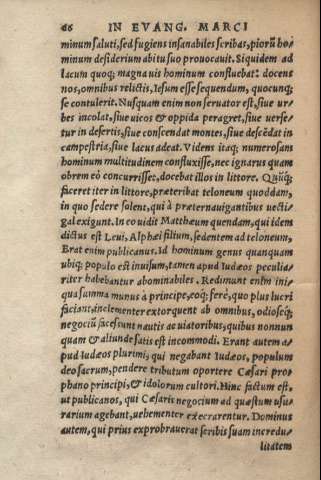 66 IN EVANG. MARCI
minum saluti, sed fugiens insanabiles scribas, piorū ho⸗
minum desiderium abitu suo prouocauit. Siquidem ad
lacum quoq; magna uis hominum confluebat: docens
nos, omnibus relictis, Iesum esse sequendum, quocunq;
se contulerit. Nusquam enim non seruator est, siue ur⸗
bes incolat, siue uicos & oppida peragret, siue uerse⸗
tur in desertis, siue conscendat montes, siue descēdat in
campestria, siue lacus adeat. Videns itaq; numerosam
hominum multitudinem confluxisse, nec ignarus quam
obrem eò concurrisset, docebat illos in littore. Quūq;
faceret iter in littore, præteribat teloneum quoddam,
in quo sedere solent, qui à præternauigantibus uecti⸗
gal exigunt. In eo uidit Matthæum quendam, qui idem
dictus est Leui, Alphæi filium, sedentem ad teloneum.
Erat enim publicanus. Id hominum genus quanquam
ubiq; populo est inuisum, tamen apud Iudæos peculia⸗
riter habebantur abominabiles. Redimunt enim ini⸗
qua summa munus à principe, eoq; ferè, quo plus lucri
faciant, inclementer extorquent ab omnibus, odioseq;
negociū facessunt nautis ac uiatoribus, quibus nonnun
quam & aliunde satis est incommodi. Erant autem a⸗
pud Iudæos plurimi, qui negabant Iudæos, populum
deo sacrum, pendere tributum oportere Cæsari pro⸗
phano principi, & idolorum cultori. Hinc factum est,
ut publicanos, qui Cæsaris negocium ad quæstum usu⸗
rarium agebant, uehementer execrarentur. Dominus
autem, qui prius exprobrauerat scribis suam incredu⸗
litatem